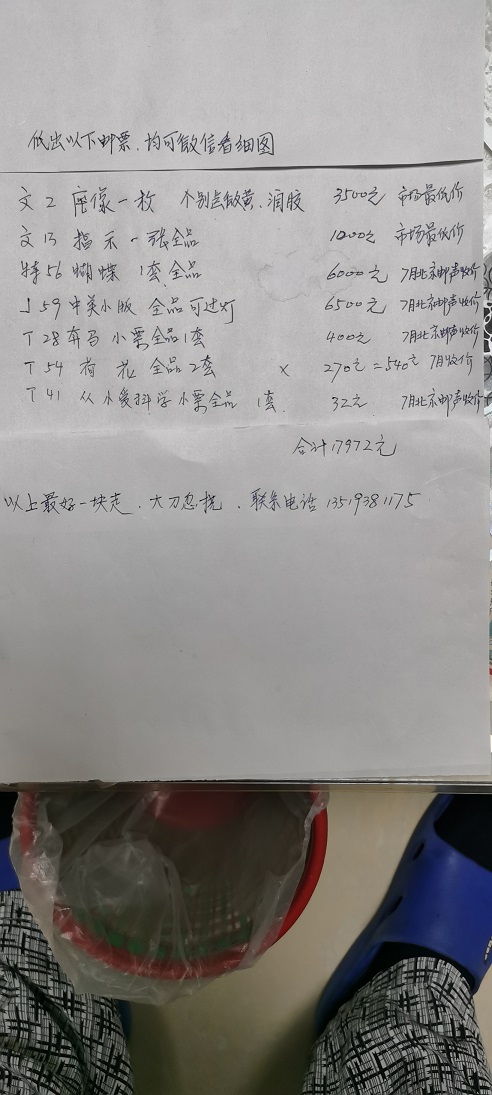 低出以下邮票.均可微信看细图
文2 座像一枚 个别齿微黄.润胶 3500元 市场最低价
文13 指示一张全品 1000元 市场最低价
特56 蝴蝶 1套全品 6000元 7月北京邮声收价
J59 中美小版 全品可过灯 6500元 7月北京邮声收价
T28奔马小票全品1套 400元 7月北京邮声收价
T54 荷花 全品2套 × 270元=540元 7月收价
T41 从小爱科学小票全品 1套. 32元 7月北京邮声收价
合计17972元
以上最好一块走.大刀忽扰.联系电话13519381175